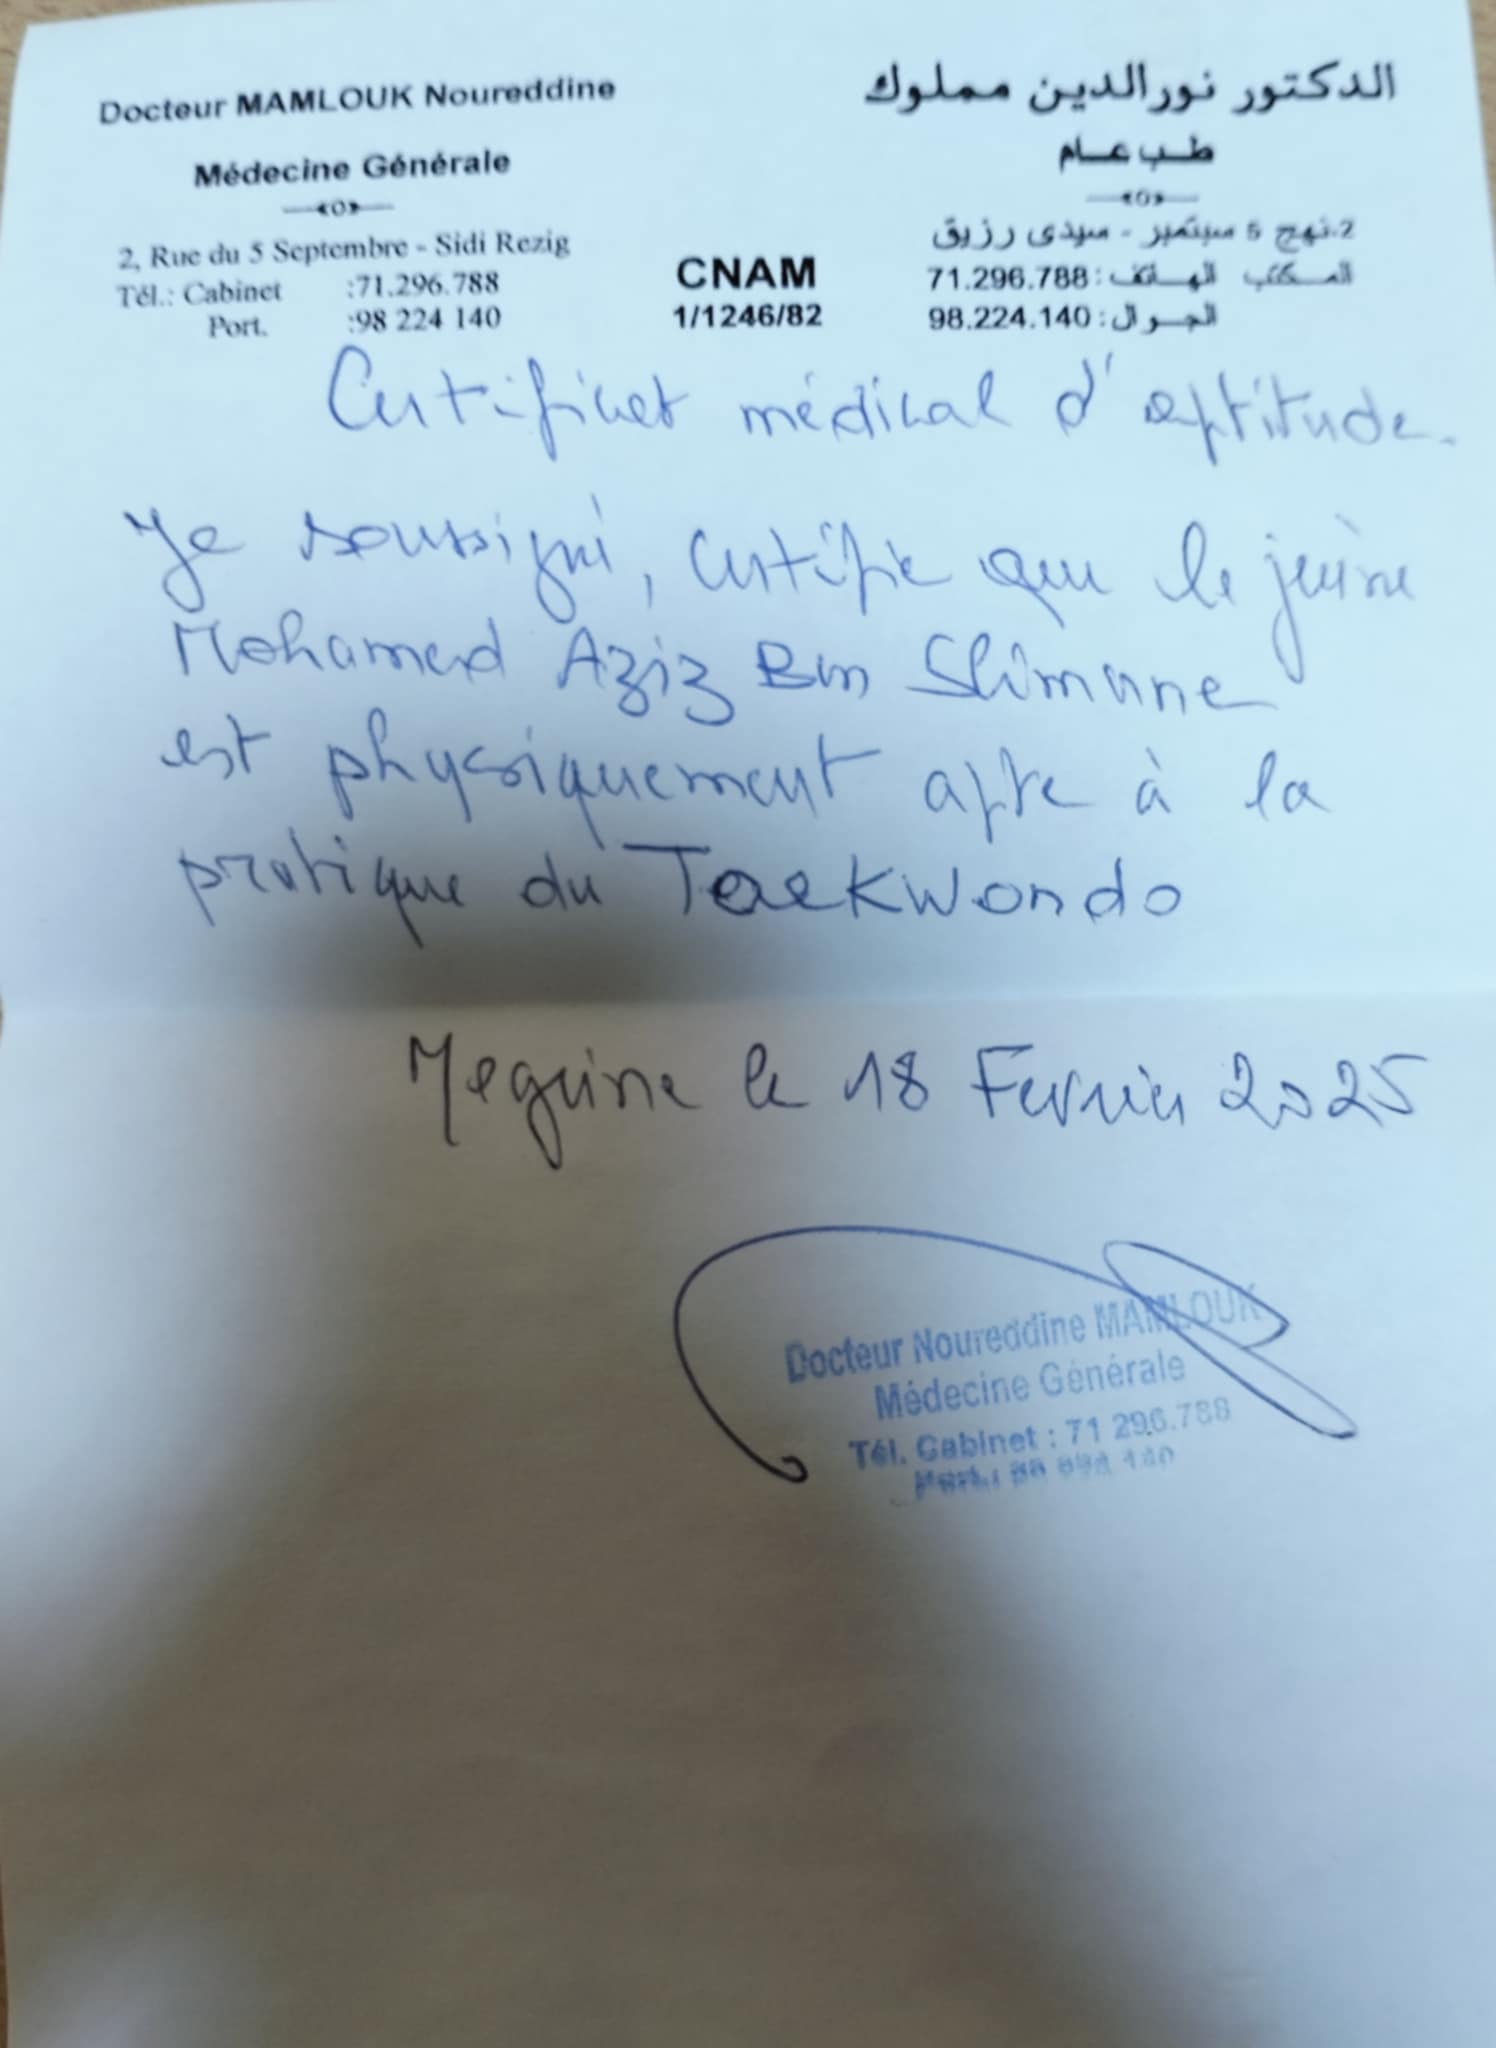 Docteur MAMLOUK Noureddine
Médecine Générale
2, Rue du 5 Septembre - Sidi Rezig
Tél.: Cabinet :71.296.788
Port. :98 224 140
CNAM
1/1246/82
الدكتور نورالدين مملوك
طب عام
2.نهج 5 سبتمبر - سيدي رزيق
المكتب الهاتف : 71.296.788
الجوال : 98.224.140
Certificat médical d'aptitude.
Je soussigné, certifie que le jeune
Mohamed Aziz Ben Slimane
est physiquement apte à la
pratique du Taekwondo
Megrine le 18 Fevrier 2025
Docteur Noureddine MAMLOUK
Médecine Générale
Tél. Cabinet : 71 296.788